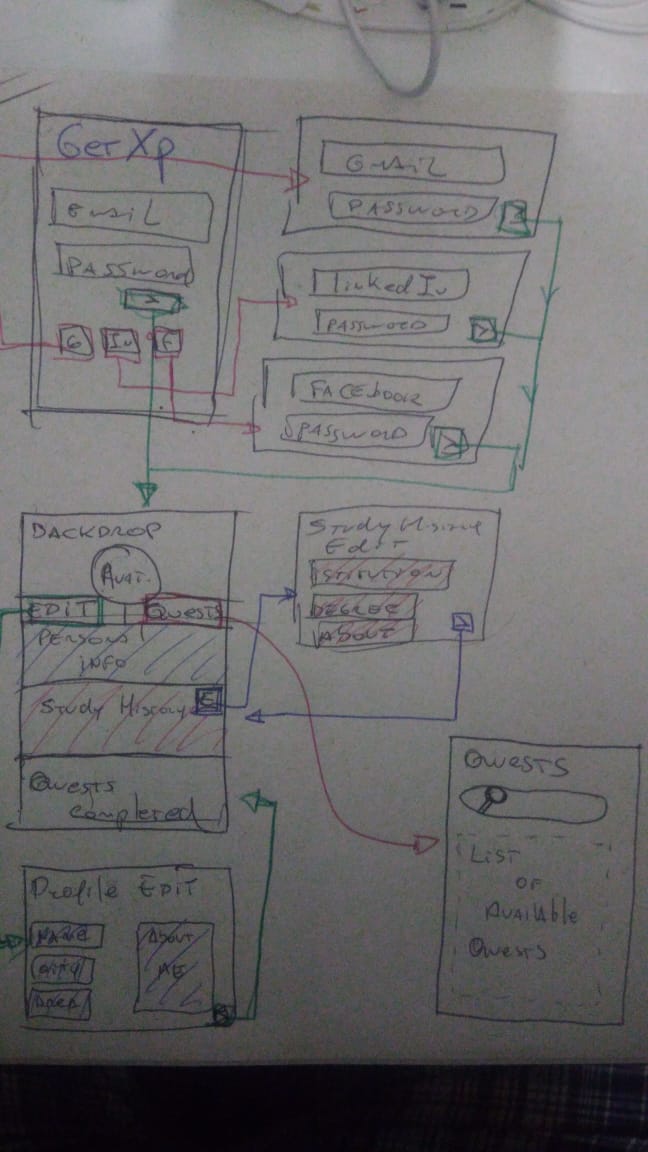 GetXp
Email
PASSword
>
G In F
GMAIL
PASSWORD
>
LinkedIn
PASSWORD
>
FACEbook
PASSWORD
>
BACKDROP
AVAT.
EDIT
QUESTS
PERSONAL
INFO
Study History
E
Quests
completed
Study Histo
EDIT
ISTITUTION
DEGREE
ABOUT
>
Profile EDIT
NAME
ABOUT
ME
QUESTS
LIST
OF
AVAilAble
Quests